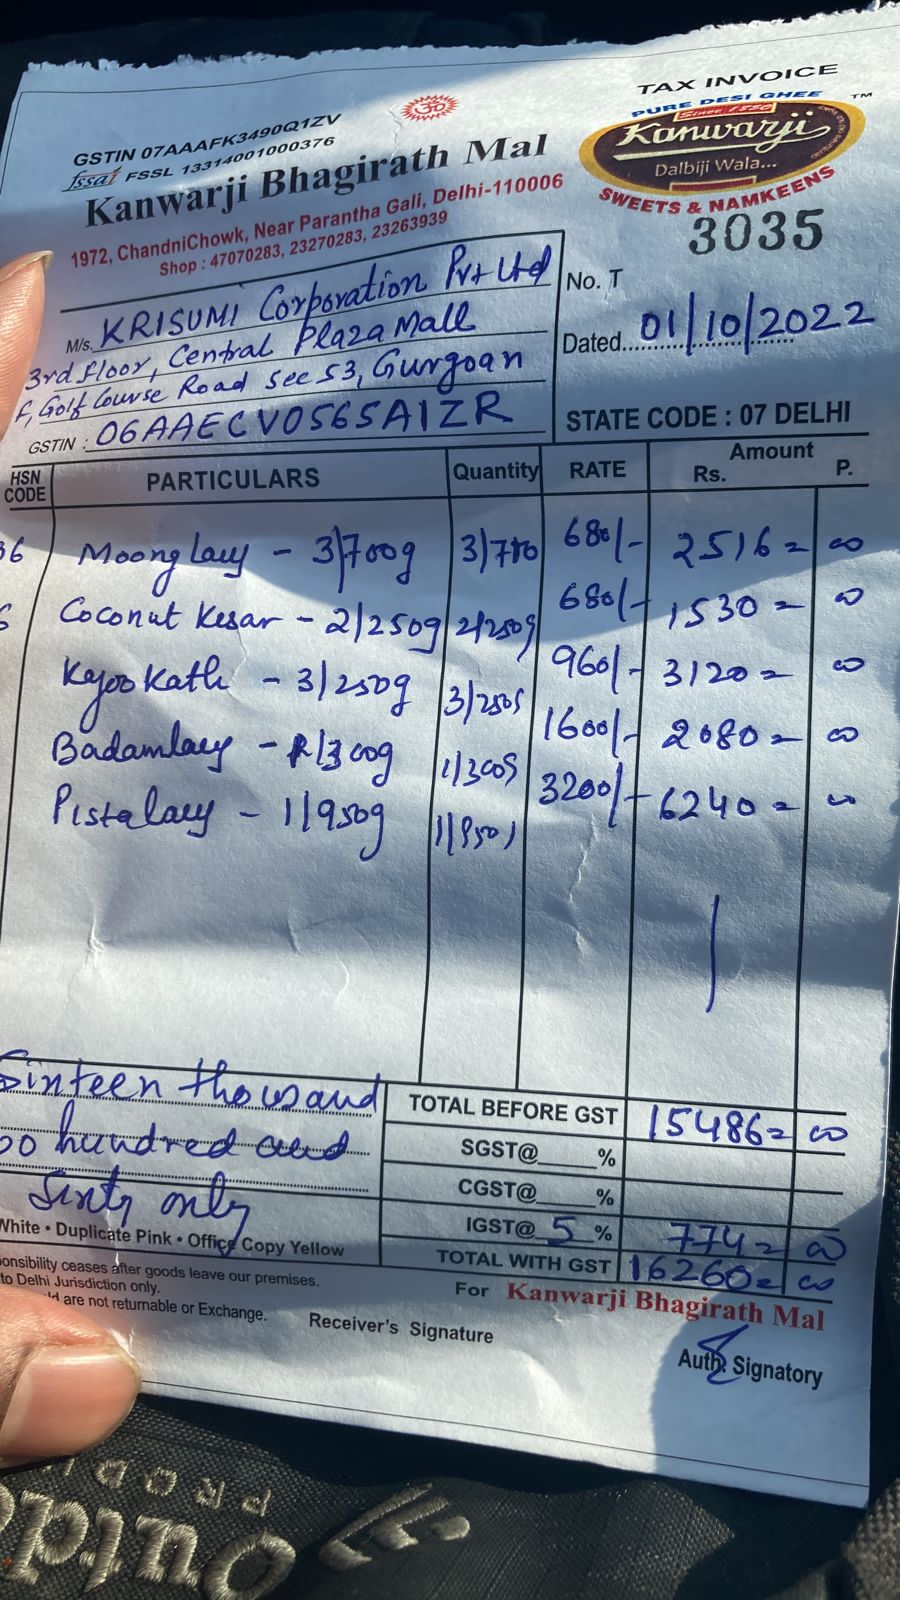 TAX INVOICE
GSTIN 07AAAFK3490Q1ZV
fssai FSSL 13314001000376
ॐ
PURE DESI GHEE
Since 1850
Kanwarji
TM
Dalbiji Wala...
SWEETS & NAMKEENS
Kanwarji Bhagirath Mal
1972, ChandniChowk, Near Parantha Gali, Delhi-110006
Shop : 47070283, 23270283, 23263939
3035
No. T
M/s. KRISUMI Corporation Pvt Ltd
3rd floor, Central Plaza Mall
Golf Course Road Sec 53, Gurgoan
GSTIN : 06AAECV0565A1ZR
Dated 01/10/2022
STATE CODE : 07 DELHI
HSN CODE PARTICULARS Quantity RATE Amount Rs. P.
36 Moong - 3/700g 3/700 680/- 2516= 00
Coconut Kesar - 2/250g 2/250g 680/- 1530= 00
- 3/250g 3/250g 960/- 3120= 00
- 1/300g 1/300g 1600/- 2080= 00
- 1/950g 1/950g 3200/- 6240= 00
Sinteen thousand
hundred and
Sinty only
TOTAL BEFORE GST 15486= 00
SGST@ %
CGST@ %
IGST@ 5 % 774= 00
TOTAL WITH GST 16260= 00
White • Duplicate Pink • Office Copy Yellow
ceases after goods leave our premises.
to Delhi Jurisdiction only.
are not returnable or Exchange.
Receiver's Signature
For Kanwarji Bhagirath Mal
Auth. Signatory
PROD
Outd